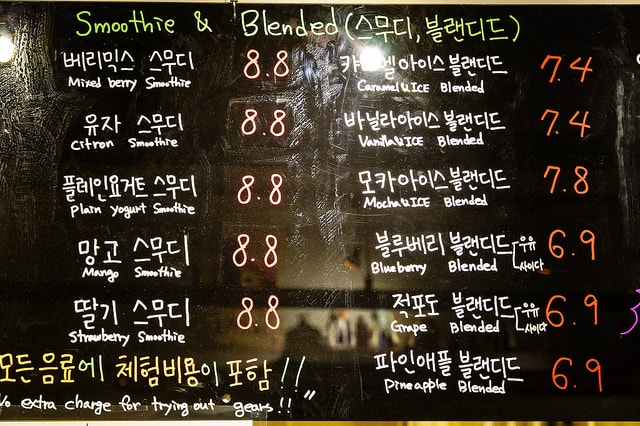 Smoothie & Blended (스무디, 블랜디드)
베리믹스 스무디 8.8
Mixed berry Smoothie
유자 스무디 8.8
Citron Smoothie
플레인요거트 스무디 8.8
Plain yogurt Smoothie
망고 스무디 8.8
Mango Smoothie
딸기 스무디 8.8
Strawberry Smoothie
모든음료에 체험비용이 포함!!
extra charge for trying out gears!!"
아이스블랜디드 7.4
Caramel ICE Blended
바닐라아이스블랜디드 7.4
Vanilla ICE Blended
모카아이스블랜디드 7.8
Mocha ICE Blended
블루베리 블랜디드 우유 사이다 6.9
Blueberry Blended
적포도 블랜디드 우유 사이다 6.9
Grape Blended
파인애플 블랜디드 6.9
Pineapple Blended